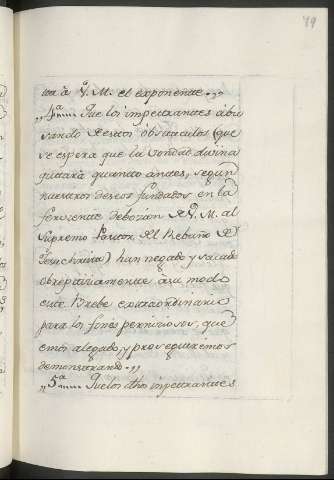 79
tea à V. M. el exponente.,,
,,4.ª Que los impetrantes abu
sando destos obstaculos (que
se espera que la bondad divina
quitará quanto antes, segun
nuestros deseos fundados en la
fervorosa de V. M. al
Supremo Pastor del Rebaño de
Jesuchristo) han negado y sacado
obreptisiamente à su modo
este Brebe extraordinario
para los fines perniciosos, que
emos alegado, y proseguiremos
demonstrando.,,
,,5.ª Que los dhos impetrantes